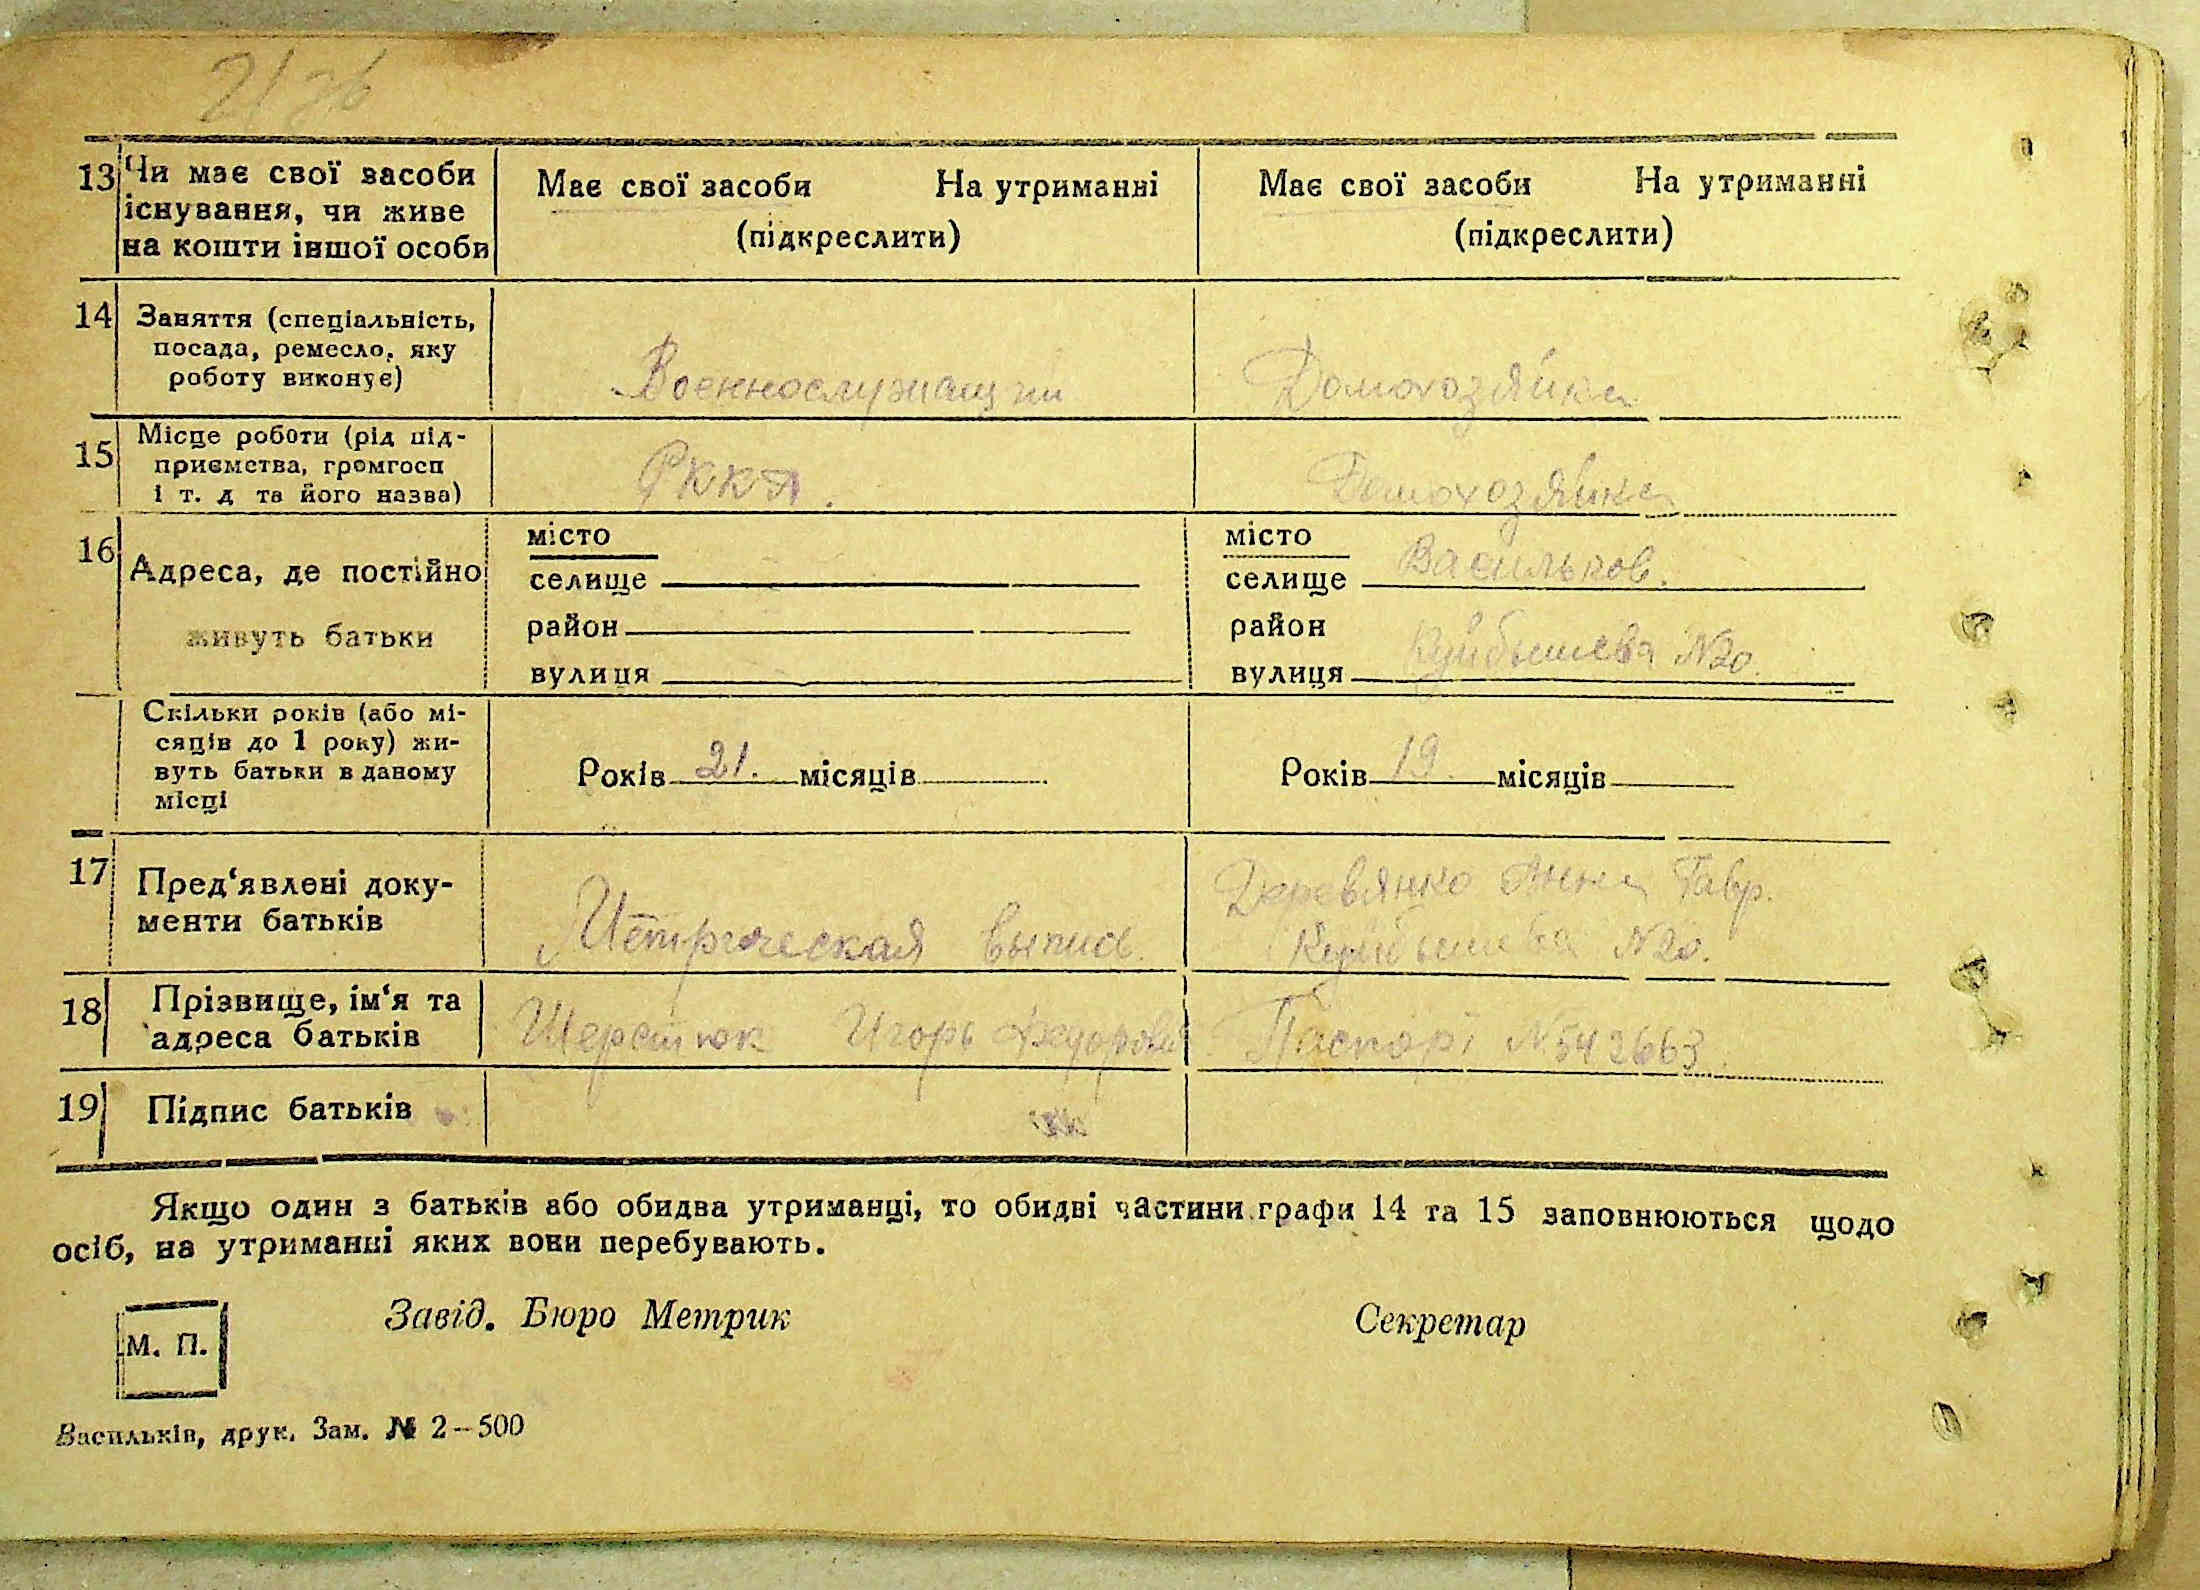 13 Чи має свої засоби існування, чи живе на кошти іншої особи
Має свої засоби На утриманні
(підкреслити)
Має свої засоби На утриманні
(підкреслити)
14 Заняття (спеціальність,
посада, ремесло, яку
роботу виконує)
Военнослужащий
Домохозяйка
15 Місце роботи (рід під-
приємства, громгосп
і т. д та його назва)
РККА.
Домохозяйка
16 Адреса, де постійно
живуть батьки
місто
селище
район
вулиця
місто
селище Васильков.
район
вулиця Куйбышева №20.
Скільки років (або мі-
сяців до 1 року) жи-
вуть батьки в даному
місці
Років 21. місяців
Років 19. місяців
17 Пред‘явлені доку-
менти батьків
Метрическая выпись.
Деревянко Анна Гавр.
Куйбышева №20.
18 Прізвище, ім‘я та
адреса батьків
Шерстюк Игорь Федорович
Паспорт №542663.
19 Підпис батьків
Якщо один з батьків або обидва утриманці, то обидві частини графи 14 та 15 заповнюються щодо
осіб, на утриманні яких вони перебувають.
М. П.
Завід. Бюро Метрик
Секретар
Васильків, друк. Зам. № 2–500